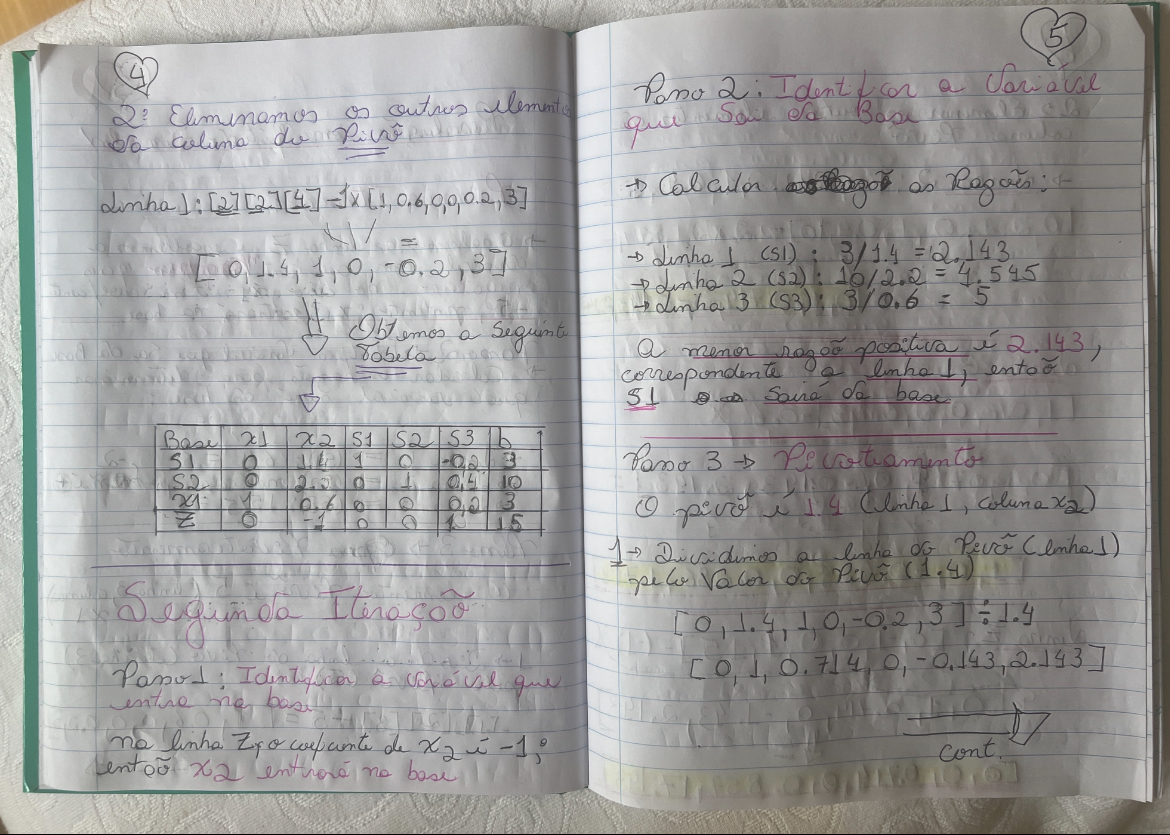 4
2º Eliminamos os outros elementos
da coluna do Pivô
Linha 1: [2][2][4] - 1x[1, 0.6, 0, 0, 0.2, 3]
=
[ 0, 1.4, 1, 0, -0.2, 3]
Obtemos a Seguinte
Tabela
Base x1 x2 S1 S2 S3 b
S1 0 1.4 1 0 -0,2 3
S2 0 2.2 0 1 0,4 10
x1 1 0.6 0 0 0,2 3
Z 0 -1 0 0 1 15
Segunda Iteração
Passo 1: Identificar a variável que
entra na base
na linha Z, o coeficiente de x2 é -1;
então x2 entrará na base
5
Passo 2: Identificar a Variável
que Sai da Base
→ Calcular as Razões:
→ Linha 1 (S1) : 3/1.4 = 2.143
→ Linha 2 (S2) : 10/2.2 = 4.545
→ Linha 3 (S3) : 3/0.6 = 5
a menor razão positiva é 2.143,
correspondente a linha 1, então
S1 Sairá da base
Passo 3 → Pivoteamento
O pivô é 1.4 (linha 1, coluna x2)
1 → Dividimos a linha do Pivô (linha 1)
pelo Valor do Pivô (1.4)
[ 0, 1.4, 1, 0, -0.2, 3 ] ÷ 1.4
[ 0, 1, 0.714, 0, -0.143, 2.143 ]
cont.